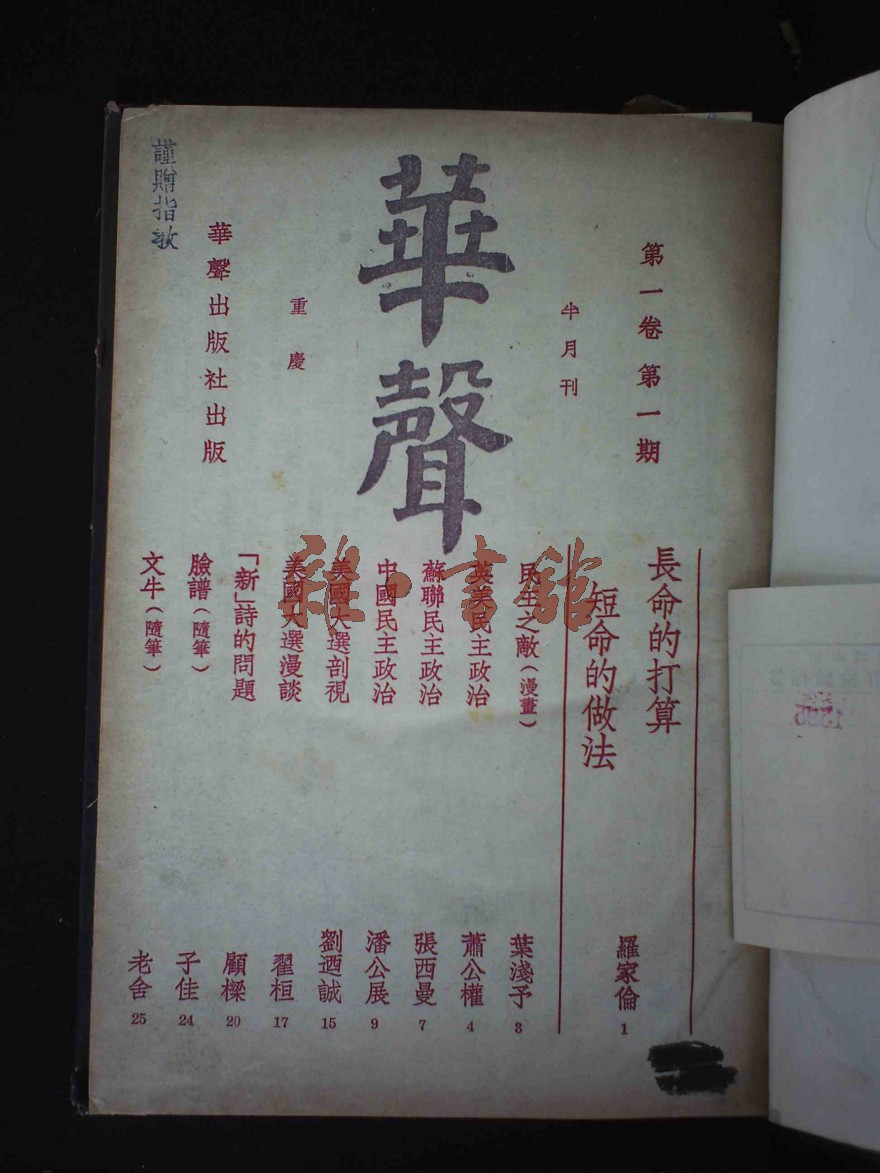 第一卷 第一期
半月刊
華聲
重慶
華聲出版社出版
謹贈指教
長命的打算
短命的做法
羅家倫 1
民生之敵(漫畫) 葉淺予 3
英美民主政治 蕭公權 4
蘇聯民主政治 張西曼 7
中國民主政治 潘公展 9
美國大選剖視 劉迺誠 15
美國大選漫談 翟桓 17
「新」詩的問題 顧樑 20
臉譜(隨筆) 子佳 24
文牛(隨筆) 老舍 25
雜·書館